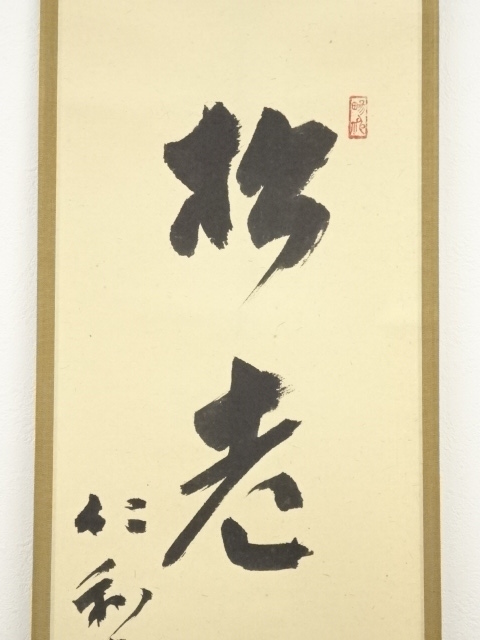 松老
仁和